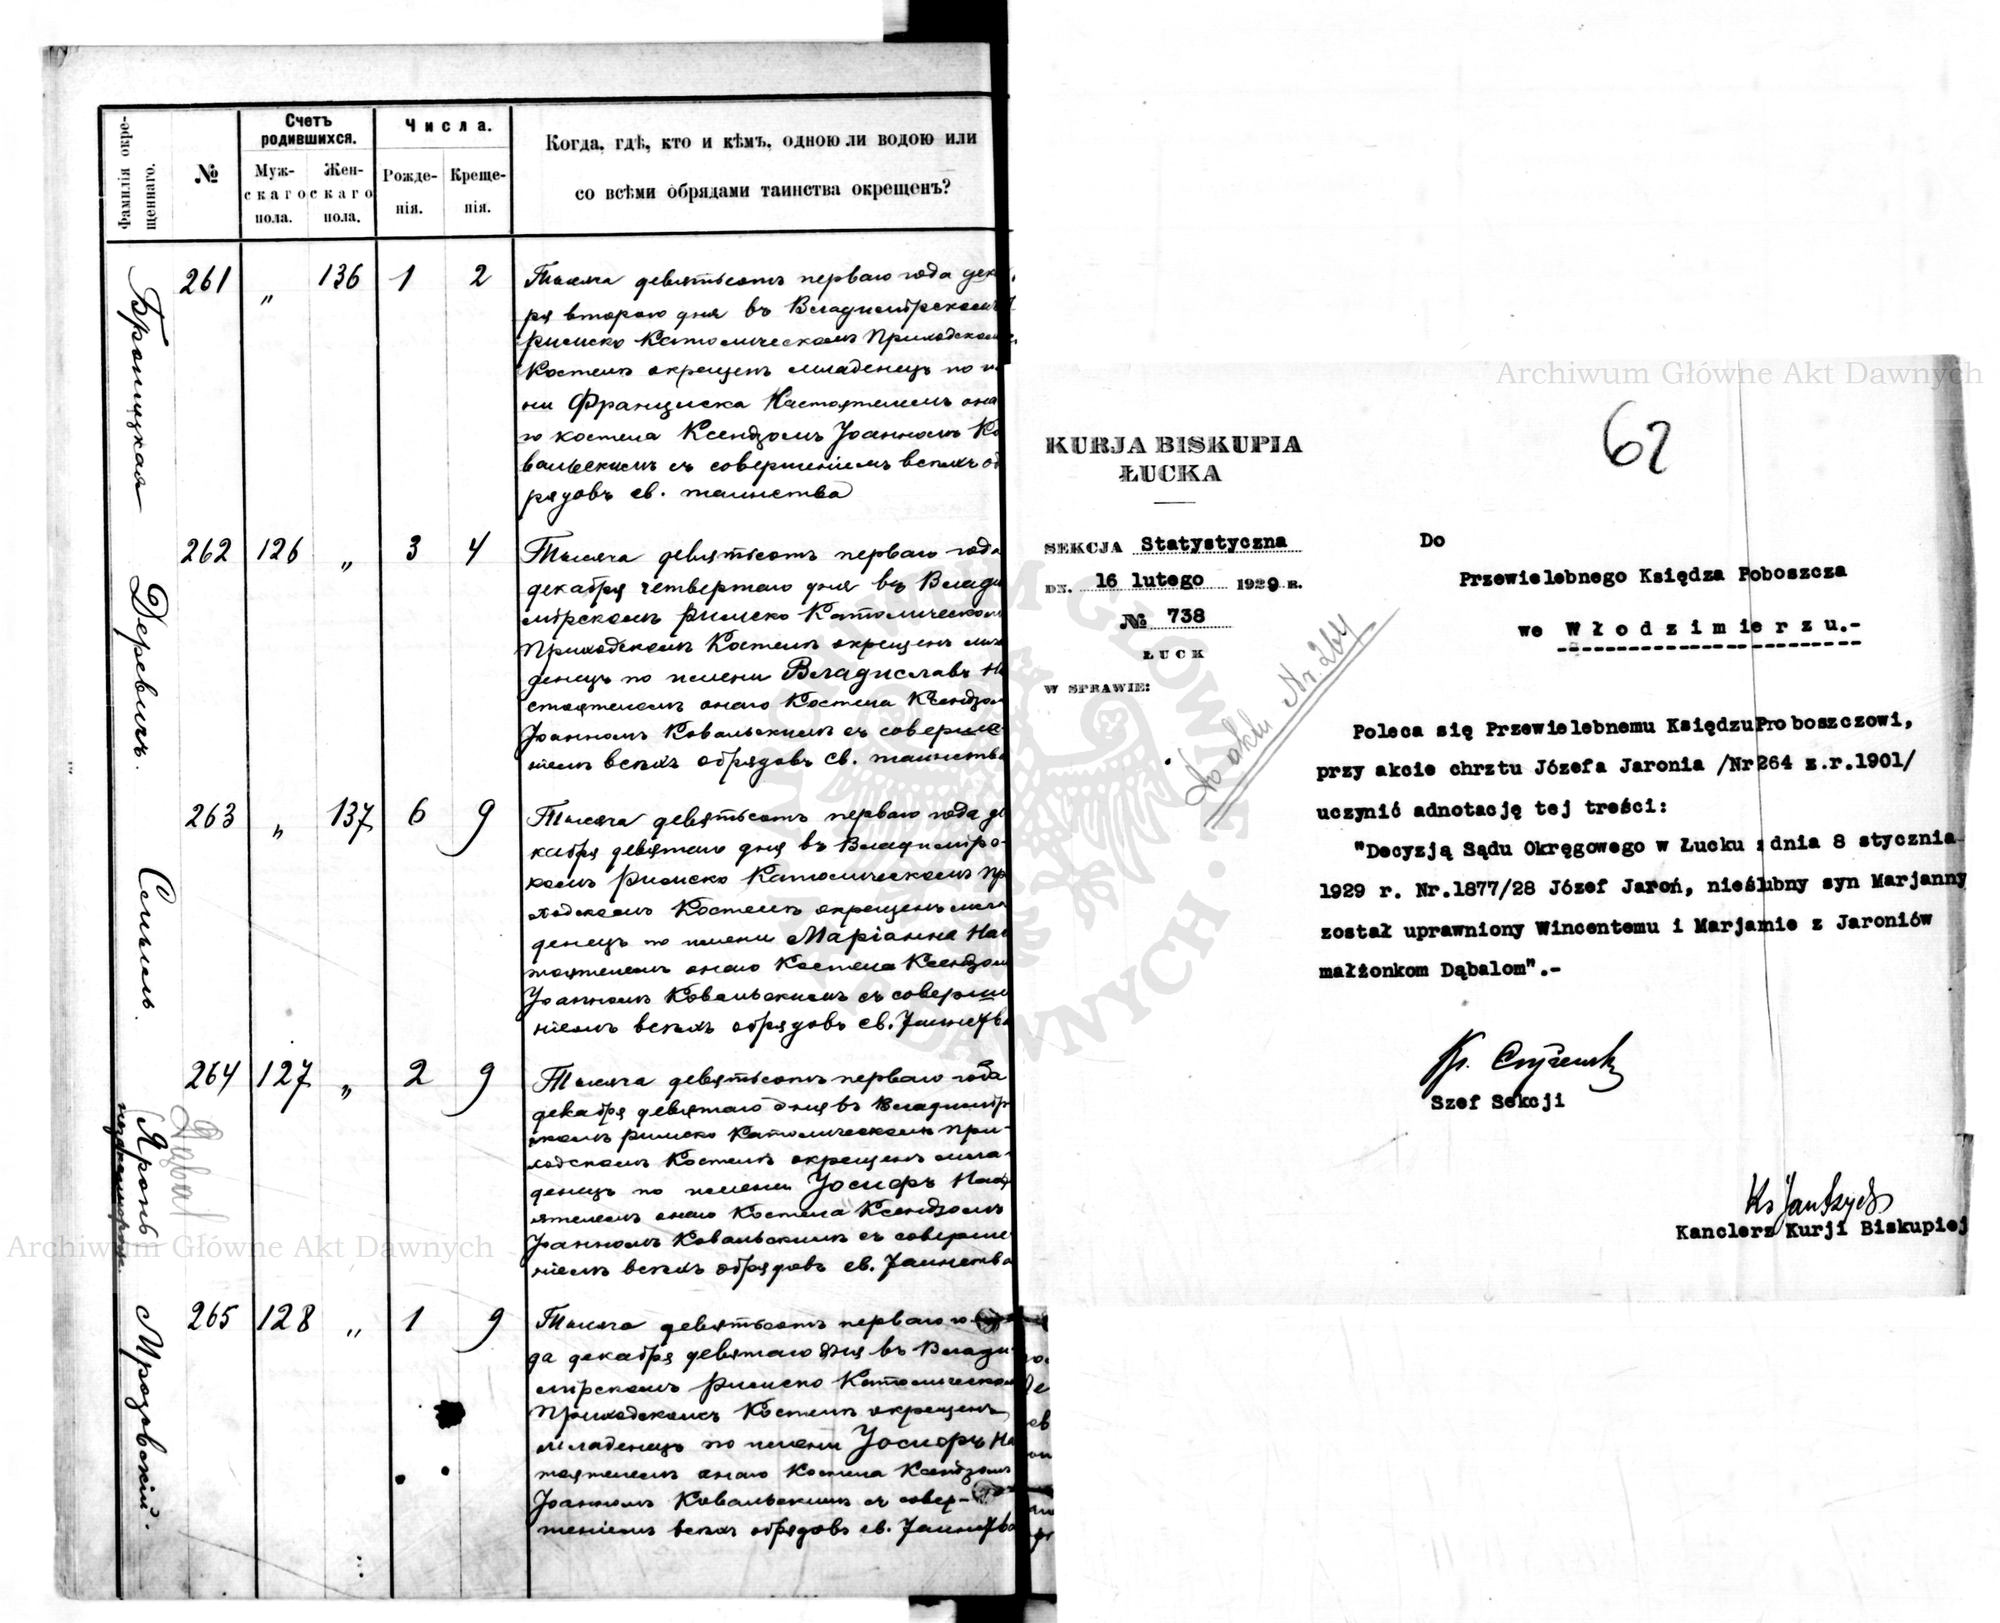 Фамилія окре-
щеннаго.
№
Счетъ
родившихся.
Муж-
скаго
пола.
Жен-
скаго
пола.
Числа.
Рожде-
нія.
Креще-
нія.
Когда, гдѣ, кто и кѣмъ, одною ли водою или
со всѣми обрядами таинства окрещенъ?
Броницкая
261 „ 136 1 2
Тысяча девятьсотъ перваго года дека
ря второго дня въ Владимірскомъ
римско Католическомъ Приходскомъ
Костелѣ окрещенъ младенецъ по и
ни Франциска Настоятелемъ она
го костела Ксендзомъ Іоанномъ Ко
вальскимъ съ совершеніемъ всѣхъ об
рядовъ св. таинства
Деревичъ.
262 126 „ 3 4
Тысяча девятьсотъ перваго года
декабря четвертаго дня въ Влади
мірскомъ римско Католическомъ
Приходскомъ Костелѣ окрещенъ мла
денецъ по имени Владиславъ На
стоятелемъ онаго Костела Ксендзом
Іоанномъ Ковальскимъ съ соверше
ніемъ всѣхъ обрядовъ св. таинства
263 „ 137 6 9
Тысяча девятьсотъ перваго года де
кабря девятаго дня въ Владимірс
комъ римско Католическомъ При
ходскомъ Костелѣ окрещенъ мла
денецъ по имени Маріанна Нас
тоятелемъ онаго Костела Ксендзом
Іоанномъ Ковальскимъ съ соверше
ніемъ всѣхъ обрядовъ св. Таинства
Яронь
незаконнорож.
Dąbal
264 127 „ 2 9
Тысяча девятьсотъ перваго года
декабря девятаго дня въ Владимір
скомъ римско Католическомъ При-
ходскомъ Костелѣ окрещенъ мла-
денецъ по имени Іосифъ Насто
ятелемъ онаго Костела Ксендзомъ
Іоанномъ Ковальскимъ съ соверше
ніемъ всѣхъ обрядовъ св. Таинства
Мрозовскій.
265 128 „ 1 9
Тысяча девятьсотъ перваго го
да декабря девятаго дня въ Влади
мірскомъ Римско Католическом
Приходскомъ Костелѣ окрещенъ
младенецъ по имени Іосифъ На
тоятелемъ онаго Костела Ксендзомъ
Іоанномъ Ковальскимъ съ совер-
шеніемъ всѣхъ обрядовъ св. Таинства
Archiwum Główne Akt Dawnych
Archiwum Główne Akt Dawnych
62
KURJA BISKUPIA
ŁUCKA
SEKCJA Statystyczna
DN. 16 lutego 1929 R.
№ 738
ŁUCK
W SPRAWIE:
Do aktu Nr. 264
Do
Przewielebnego Księdza Poboszcza
we Włodzimierzu.-
Poleca się Przewielebnemu KsiędzuProboszczowi,
przy akcie chrztu Józefa Jaronia /Nr 264 z.r.1901/
uczynić adnotację tej treści:
"Decyzją Sądu Okręgowego w Łucku z dnia 8 stycznia
1929 r. Nr.1877/28 Józef Jaroń, nieślubny syn Marjanny
został uprawniony Wincentemu i Marjamie z Jaroniów
małżonkom Dąbalom".-
Szef Sekcji
Kanclerz Kurji Biskupiej